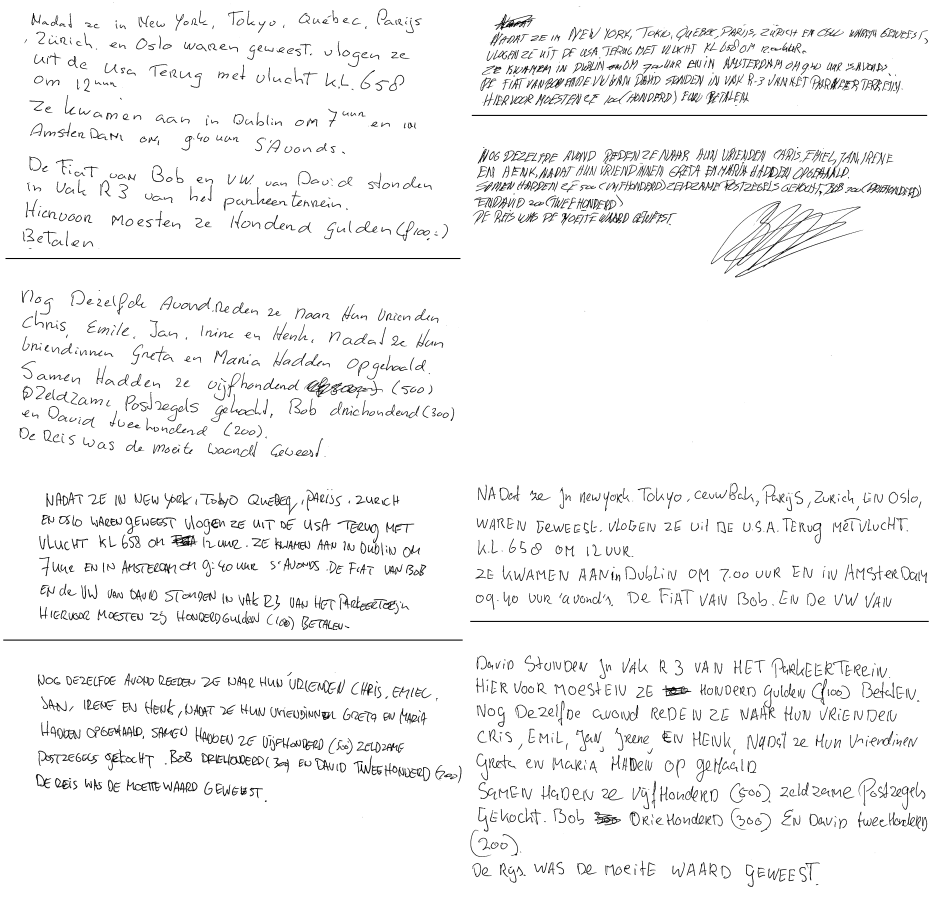 Nadat ze in New York, Tokyo, Québec, Parijs
, Zürich en Oslo waren geweest. vlogen ze
uit de Usa Terug met vlucht K.L. 658
om 12 uur
Ze kwamen aan in Dublin om 7 uur en in
Amsterdam om 9:40 uur S'Avonds.
De Fiat van Bob en VW van David stonden
in vak R 3 van het parkeerterrein.
Hiervoor moesten ze Honderd gulden (f100,-)
Betalen
Nog Dezelfde Avond. Reden ze naar Hun Vrienden
Chris, Emile, Jan, Irine en Henk, nadat ze Hun
Vriendinnen Greta en Maria Hadden Opgehaald.
Samen Hadden ze vijfhonderd (500)
zeldzame Postzegels gekocht, Bob driehonderd (300)
en David tweehonderd (200).
De Reis was de moeite waardt Geweest.
NADAT ZE IN NEW YORK, TOKYO QUEBEQ, PARIJS. ZURICH
EN OSLO WAREN GEWEEST VLOGEN ZE UIT DE USA TERUG MET
VLUCHT KL 658 OM 12 UUR. ZE KWAMEN AAN IN DUBLIN OM
7 UUR EN IN AMSTERDAM OM 9:40 UUR S'AVONDS. DE FIAT VAN BOB
EN de VW VAN DAVID STONDEN IN VAK R3 VAN HET
HIERVOOR MOESTEN ZIJ HONDERD GULDEN (100) BETALEN-
NOG DEZELFDE AVOND REEDEN ZE NAAR HUN VRIENDEN CHRIS, EMIEL,
JAN, IRENE EN HENK, NADAT ZE HUN VRIENDINNEN GRETA EN MARIA
HADDEN OPGEHAALD, SAMEN HADDEN ZE VIJFHONDERD (500) ZELDZAME
POSTZEGELS GEKOCHT. BOB DRIEHONDERD (300) EN DAVID TWEEHONDERD (200)
DE REIS WAS DE MOEITE WAARD GEWEEST.
NADAT ZE IN NEW YORK, QUEBEC, PARIJS, ZURICH EN OSLO WAREN GEWEEST,
VLOGEN ZE UIT DE USA TERUG MET VLUCHT KL 658 OM 12 UUR.
ZE KWAMEN IN DUBLIN OM 7 UUR EN IN AMSTERDAM OM 9 40 UUR S AVONDS
DE FIAT VAN BOB EN DE VW VAN DAVID STONDEN IN VAK R-3 VAN HET PARKEERTERREIN.
HIERVOOR MOESTEN ZE 100 (HONDERD) BETALEN.
NOG DEZELFDE AVOND REDEN ZE NAAR HUN VRIENDEN CHRIS, EMIEL, JAN, IRENE
EN HENK, NADAT HUN VRIENDINNEN GRETA EN MARIA HADDEN OPGEHAALD.
SAMEN HADDEN ZE 500 (VIJFHONDERD) ZELDZAME POSTZEGELS GEKOCHT, BOB 300 (DRIEHONDERD)
EN DAVID 200 (TWEEHONDERD)
DE REIS WAS DE MOEITE WAARD GEWEEST.
NADat ze In newyork. Tokyo, Parijs, Zurich, EN Oslo,
WAREN GEWEESE. VLOGEN ZE uit DE U.S.A. TERUG MET VLUCHT.
K.L. 658 OM 12 UUR.
ZE KWAMEN AAN in DUBLIN OM 7.00 UUR EN in AMSTERDAM
09.40 UUR 'avond's. DE FiAT VAN Bob. EN DE VW VAN
David STONDEN In VAK R 3 VAN HET PARKEERTEREIN.
HiER VOOR MOESTEIN ZE HONDERD gulden (f100) BetALEN.
Nog DEZElfde avond REDEN ZE NAAR HUN VRIENDEN
CRIS, EMIL, Jan, Irene, EN HENK, NADat ze Hun Vriendinen
Greta en MARIA HADEN OP gEHaalD
SAMEN HADEN ZE VijfHonderD (500) zeldzame Postzegels
GEKocht. Bob DRieHonderD (300) EN DAViD tweeHonderD
(200).
De Rijs. WAS DE MOEITE WAARD GEWEEST.